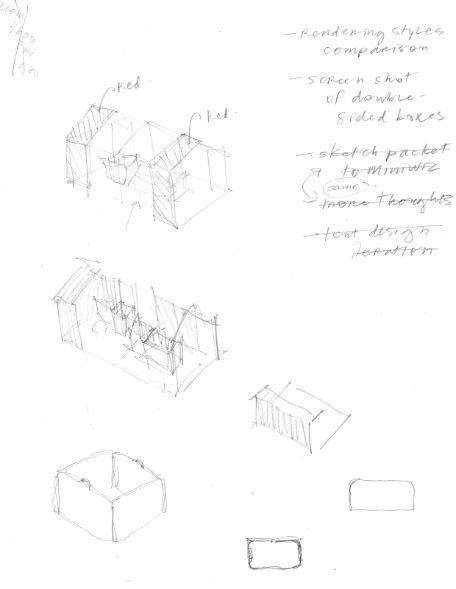 Red
Red
- Rendering styles
comparison
- screen shot
of double-
sided boxes
- sketch packet
to Miniwiz
same
- more thoughts
- tent design
iteration